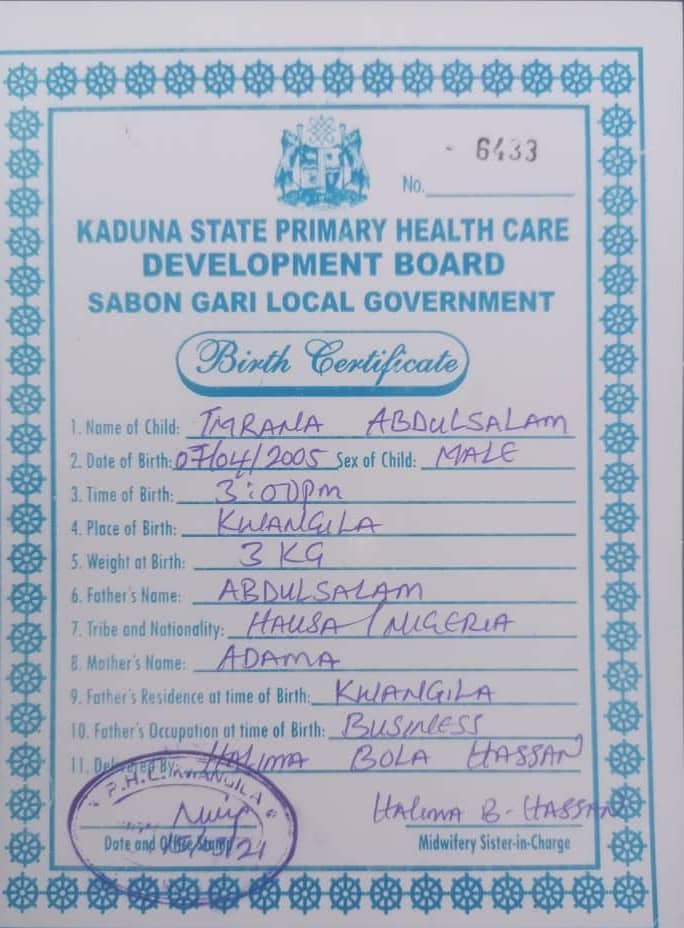 - 6433
No.
KADUNA STATE PRIMARY HEALTH CARE
DEVELOPMENT BOARD
SABON GARI LOCAL GOVERNMENT
Birth Certificate
1. Name of Child: IMRANA ABDULSALAM
2. Date of Birth: 07/04/2005 Sex of Child: MALE
3. Time of Birth: 3:00pm
4. Place of Birth: KWANGILA
5. Weight at Birth: 3 KG
6. Father's Name: ABDULSALAM
7. Tribe and Nationality: HAUSA / NIGERIA
8. Mother's Name: ADAMA
9. Father's Residence at time of Birth: KWANGILA
10. Father's Occupation at time of Birth: BUSINESS
11. Delivered By: HALIMA BOLA HASSAN
P.H.C. KWANGILA
HALIMA B- HASSAN
Date and Office Stamp
Midwifery Sister-in-Charge